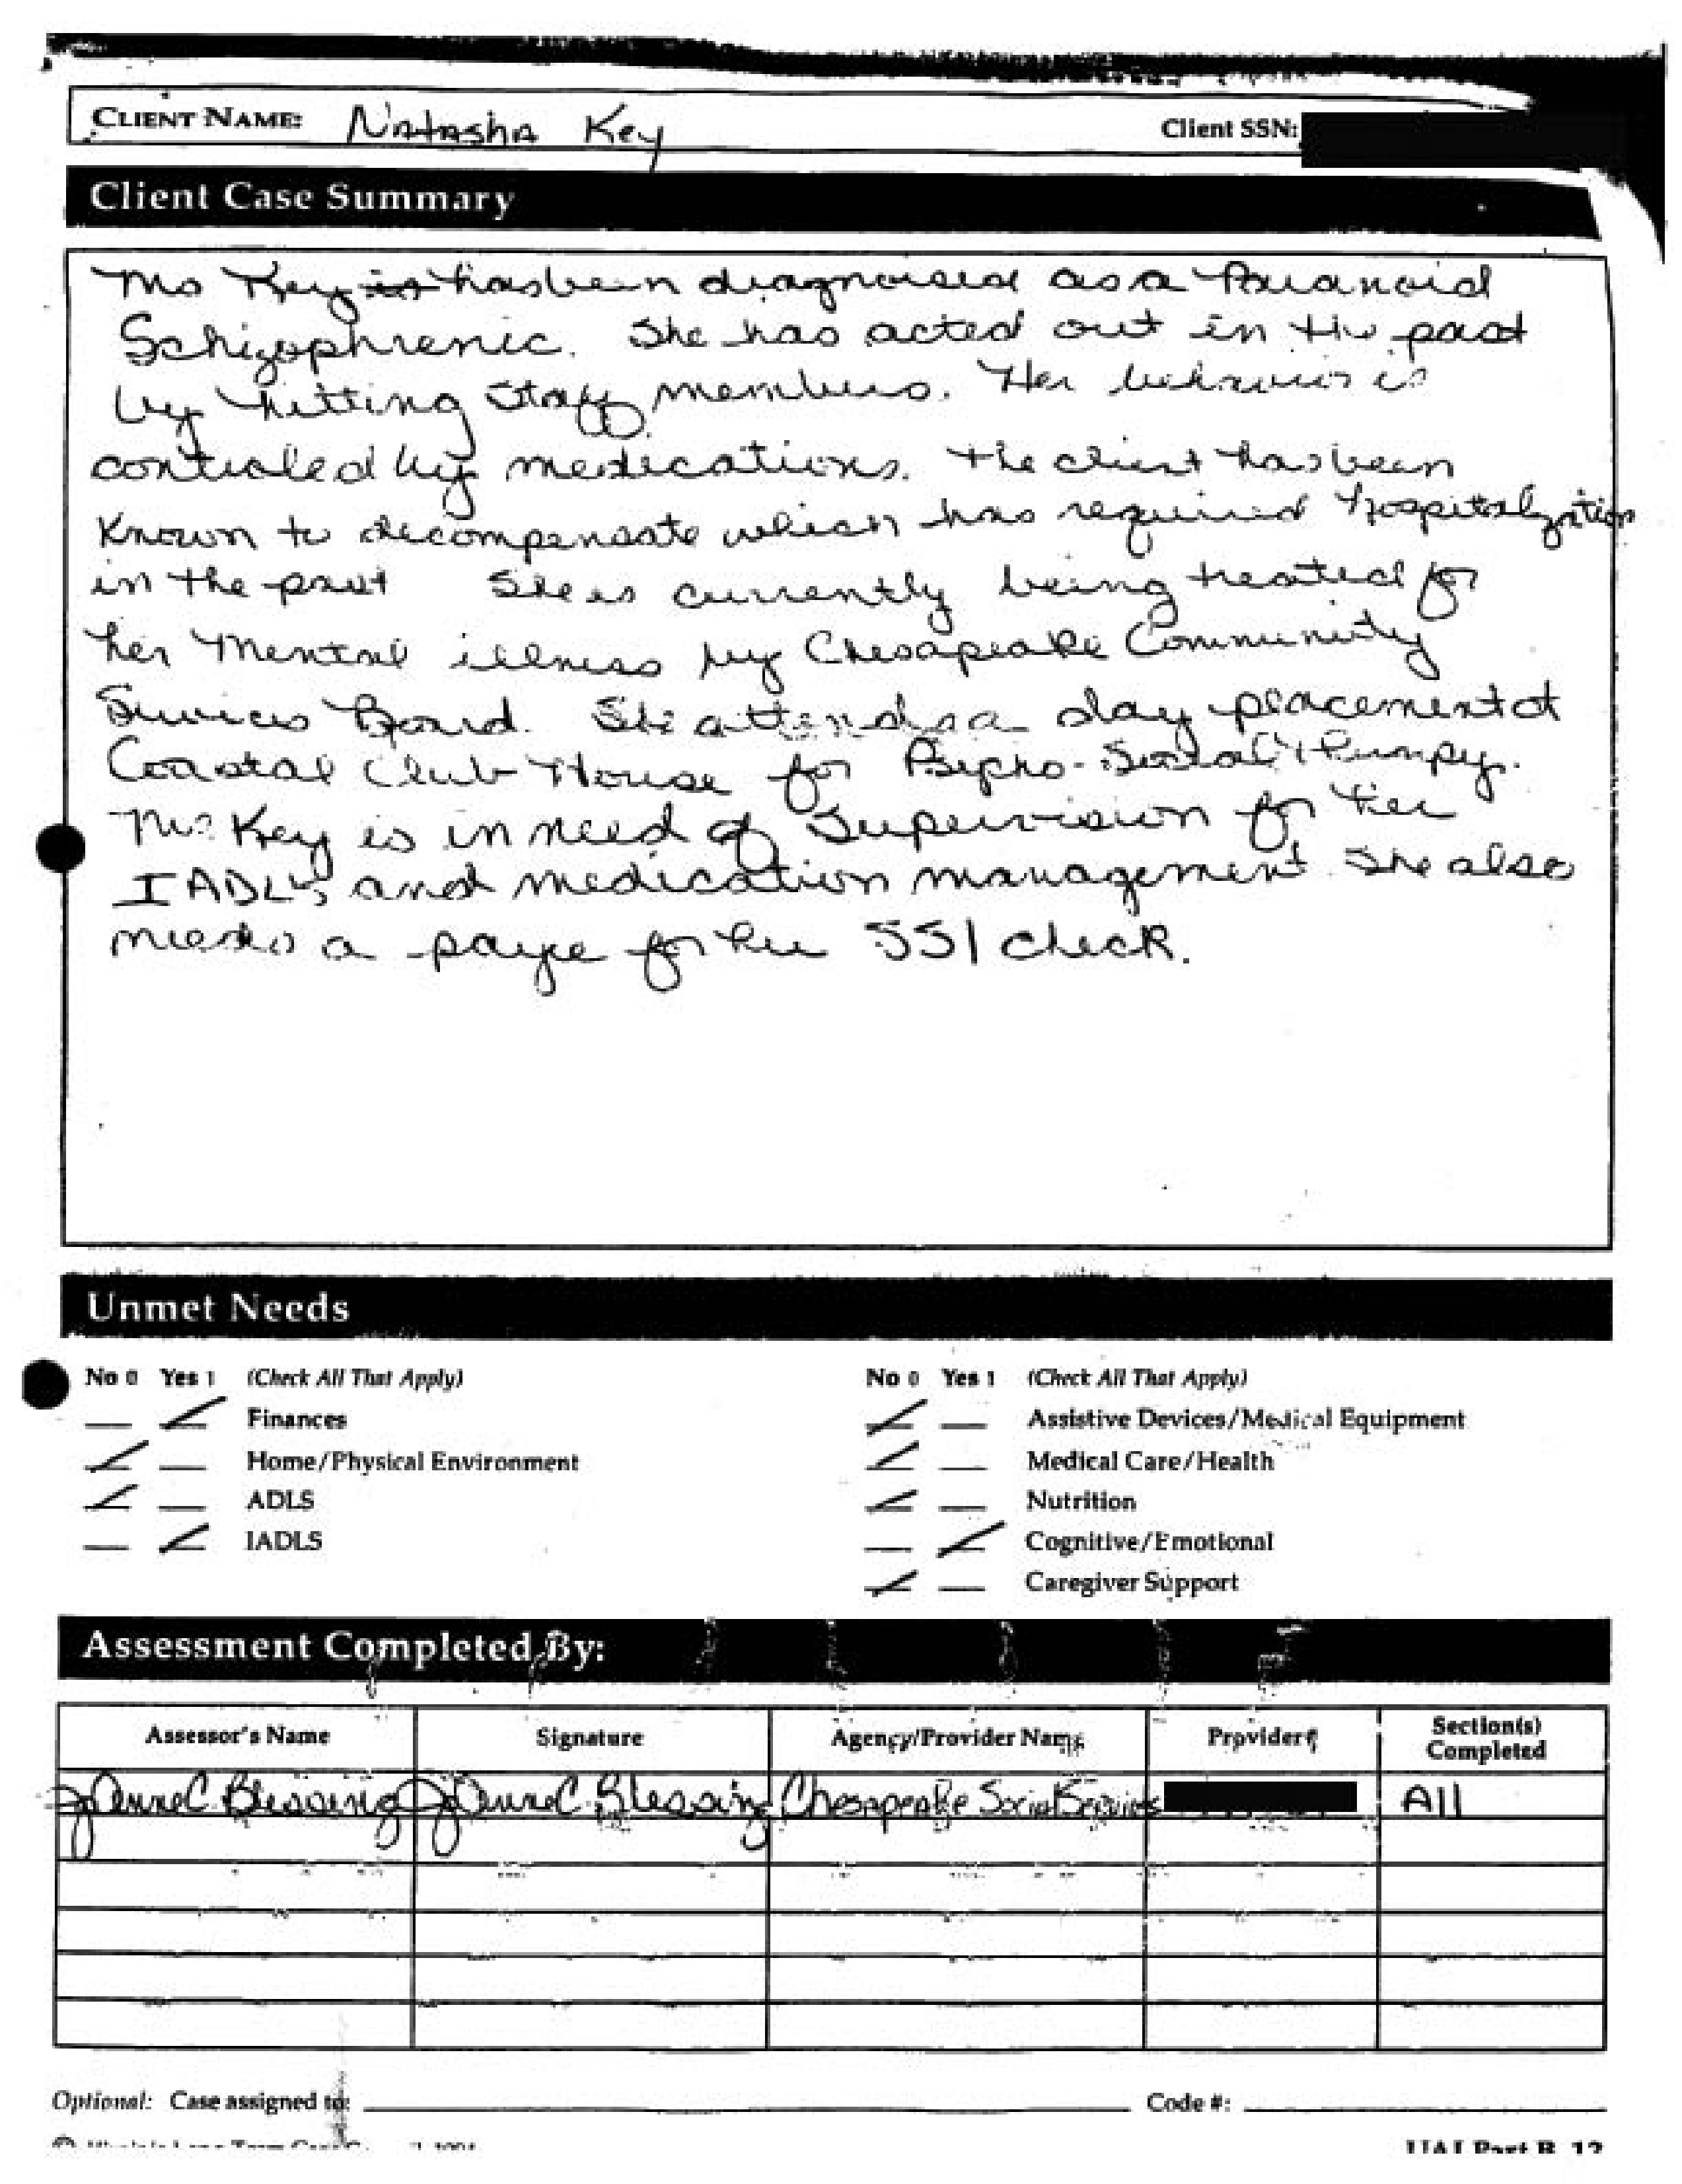 CLIENT NAME: Natasha Key Client SSN:
Client Case Summary
Ms Key is has been diagnosised as a Paranoid
Schizophrenic. She has acted out in the past
by hitting staff members. Her behavior is
controled by medications. The client has been
Known to decompensate which has required hospitalization
in the past She is currently being treated for
her Mental illness by Chesapeake Community
Services Board. She attends a day placement at
Coastal Club House for Psycho-Social
Ms Key is in need of Supervision for her
IADL's and medication management. She also
needs a payee for her SSI check.
Unmet Needs
No 0 Yes 1 (Check All That Apply) No 0 Yes 1 (Check All That Apply)
Finances Assistive Devices/Medical Equipment
Home/Physical Environment Medical Care/Health
ADLS Nutrition
IADLS Cognitive/Emotional
Caregiver Support
Assessment Completed By:
Assessor's Name Signature Agency/Provider Name Provider# Section(s) Completed
JoAnne C. Blessing JoAnne C. Blessing Chesapeake Social Services All
Optional: Case assigned to: Code #:
UAI Part B 12